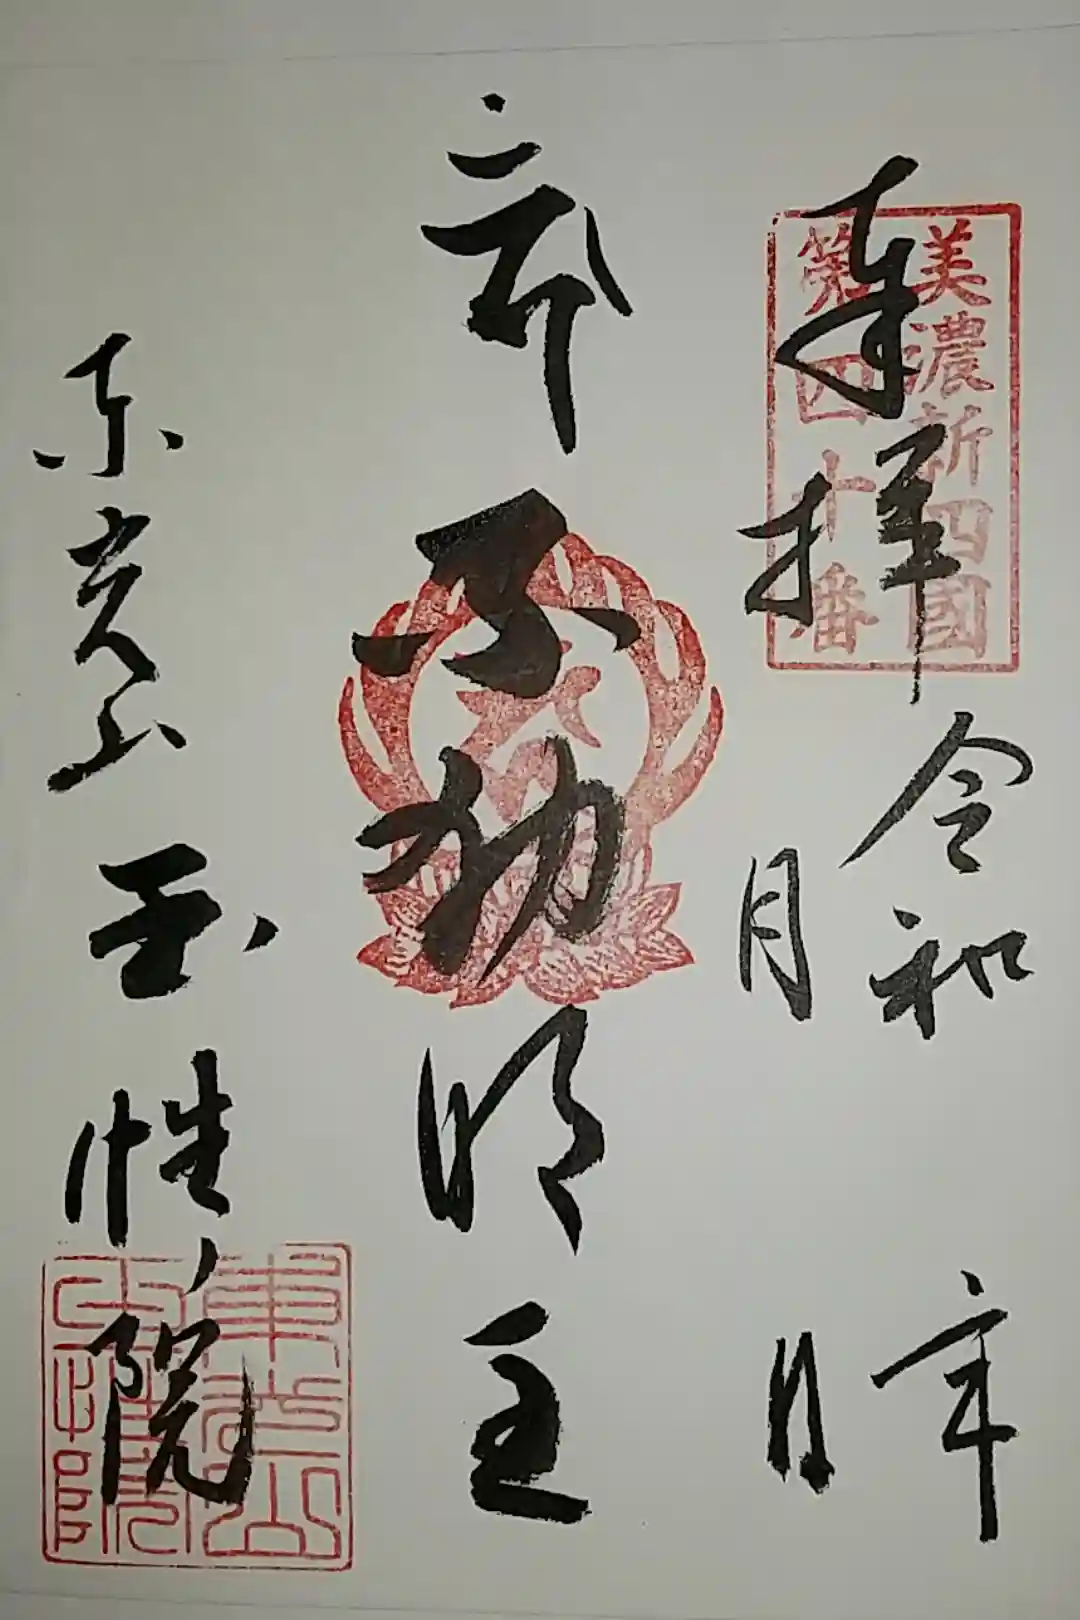 美濃新四國
第四十番
奉拝
令和 年
月 日
不動明王
東光山 玉性院